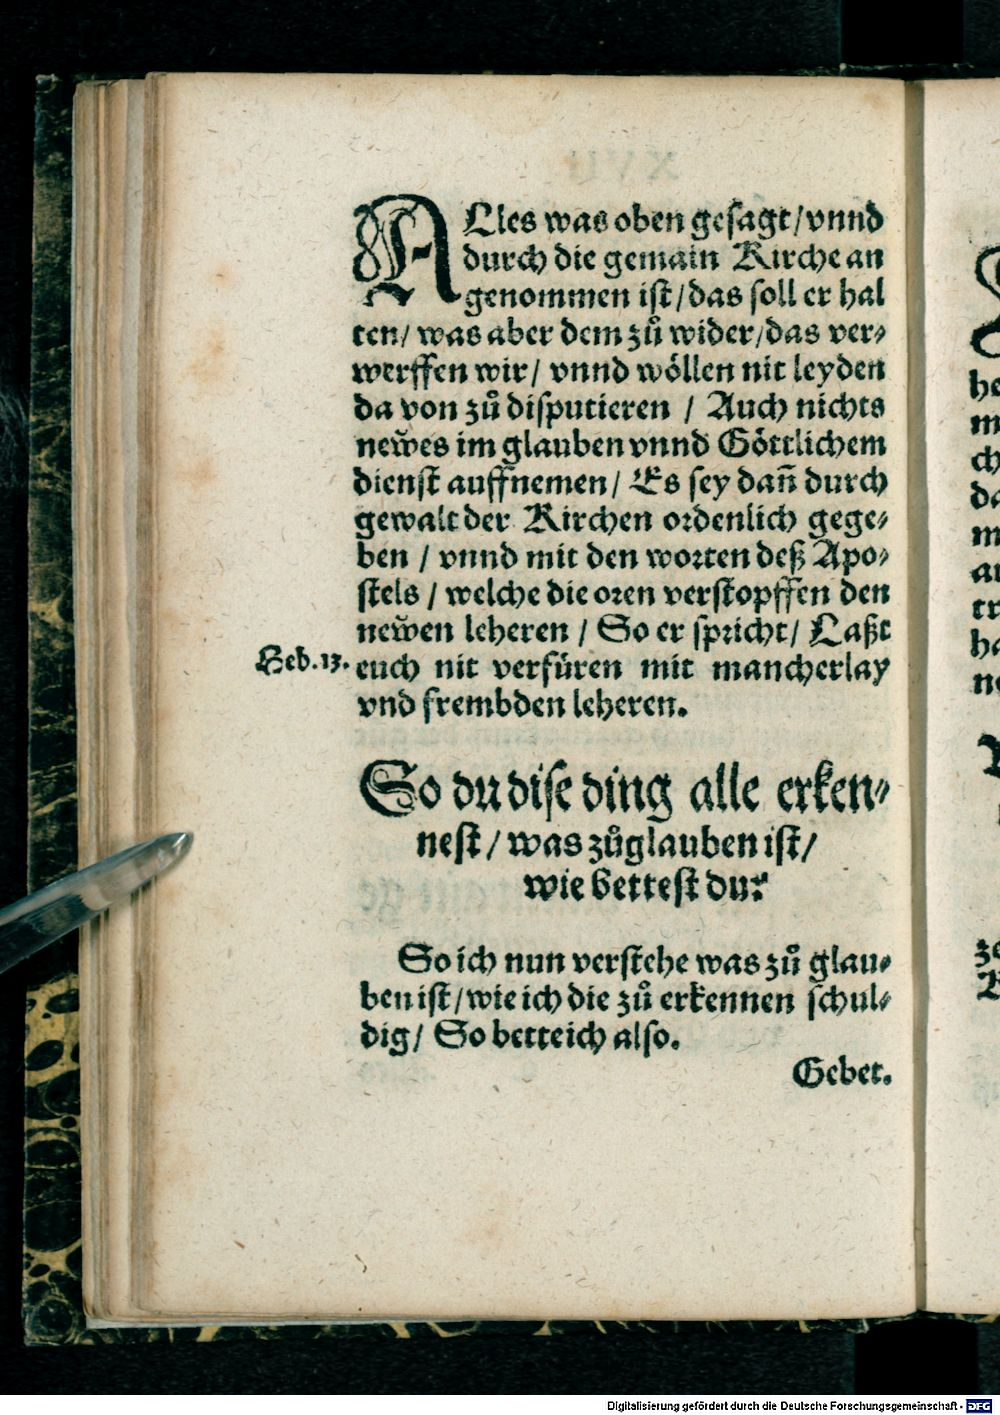 ALles was oben gesagt / vnnd
durch die gemain Kirche an
genommen ist / das soll er hal
ten / was aber dem zů wider / das ver⸗
werffen wir / vnnd wöllen nit leyden
da von zů disputieren / Auch nichts
neẅes im glauben vnnd Göttlichem
dienst auffnemen / Es sey dañ durch
gewalt der Kirchen ordenlich gege⸗
ben / vnnd mit den worten deß Apo⸗
stels / welche die oren verstopffen den
neẅen leheren / So er spricht / Laßt
Heb. 13. euch nit verfüren mit mancherlay
vnd frembden leheren.
So du dise ding alle erken⸗
nest / was zů glauben ist /
wie bettest du?
So ich nun verstehe was zů glau⸗
ben ist / wie ich die zů erkennen schul⸗
dig / So bette ich also.
Gebet.
Digitalisierung gefördert durch die Deutsche Forschungsgemeinschaft - DFG